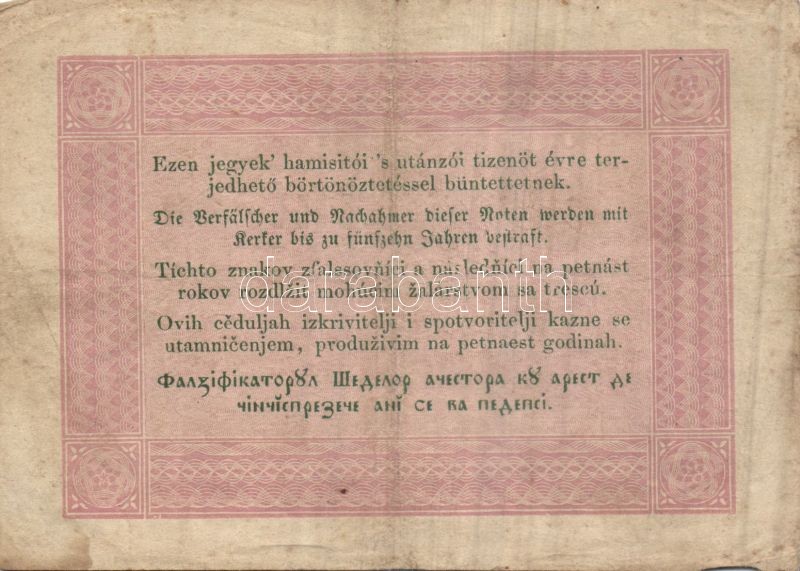 Ezen jegyek' hamisitói 's utánzói tizenöt évre ter-
jedhető börtönöztetéssel büntettetnek.
Die Verfälscher und Nachahmer dieser Noten werden mit
Kerker bis zu fünfzehn Jahren bestraft.
Tíchto znakov zfalesovňíci a následňíci na petnást
rokov rozdlžit mohúcim žalárstvom sa trescú.
Ovih cěduljah izkrivitelji i spotvoritelji kazne se
utamničenjem, produživim na petnaest godinah.
Фалзіфікаторꙋл Шеделор ачестора кꙋ арест де
чінчіспрезече ані се ва педепсі.
darabanth